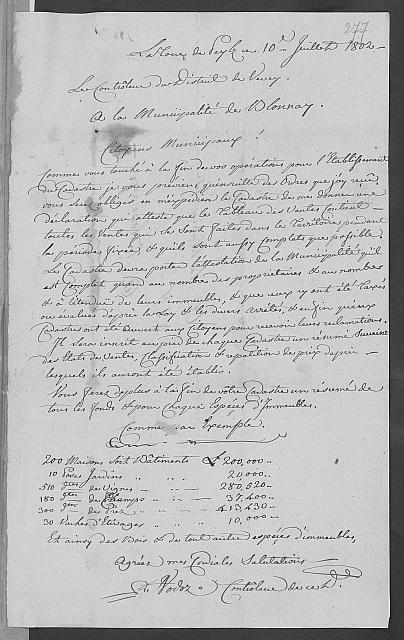 277
La Tour de Peylz ce 10e Juillet 1802
Le Contrôleur du District de Vevey.
A la Municipalité de Blonnay.
Citoyens Municipaux!
Comme vous touché à la fin de vos operations pour l'Etablissement
du Cadastre je vous préviens, qu'ensuitte des Ordres que j'ay reçu
vous êtes obligés en m'expédiant le Cadastre de me donner une
déclaration qui atteste que les Tableaux des Ventes Contient
toutes les Ventes qui se sont faites dans le Territoire pendant
la période fixée, & qu'ils sont aussy Complets que possible.
Le Cadastre devra porter l'attestation de la Municipalité qu'il
est Complet quand au nombre des propriétaires & au nombre
& à l'étendue de leurs immeubles, & que ceux cy ont été taxés
ou évalués d'après la Loy & les divers arrêtés, & enfin qu'iceux
Cadastres ont été ouvert aux Citoyens pour recevoir leurs réclamations.
Il sera inscrit au pied de chaque Cadastre un résumé suivant
des Etats de Ventes, Classification & répartition de prix d'après
lesquels ils auront été établis.
Vous ferez de plus à la fin de vôtre Cadastre un résumé de
tous les fonds & pour chaque Espèces d'Immeubles.
Comme par Exemple.
200 Maisons soit Bâtiments 200,000
10 Poses Jardins 20,000
510 de Vignes 280,520
180 de Champs 37,400
300 de Prez 413,430
30 d'Etivages 10,000
Et ainsy des Bois & de tout autre espèces d'immeubles,
Agréés mes Cordiales Salutations
Controleur de ce D.